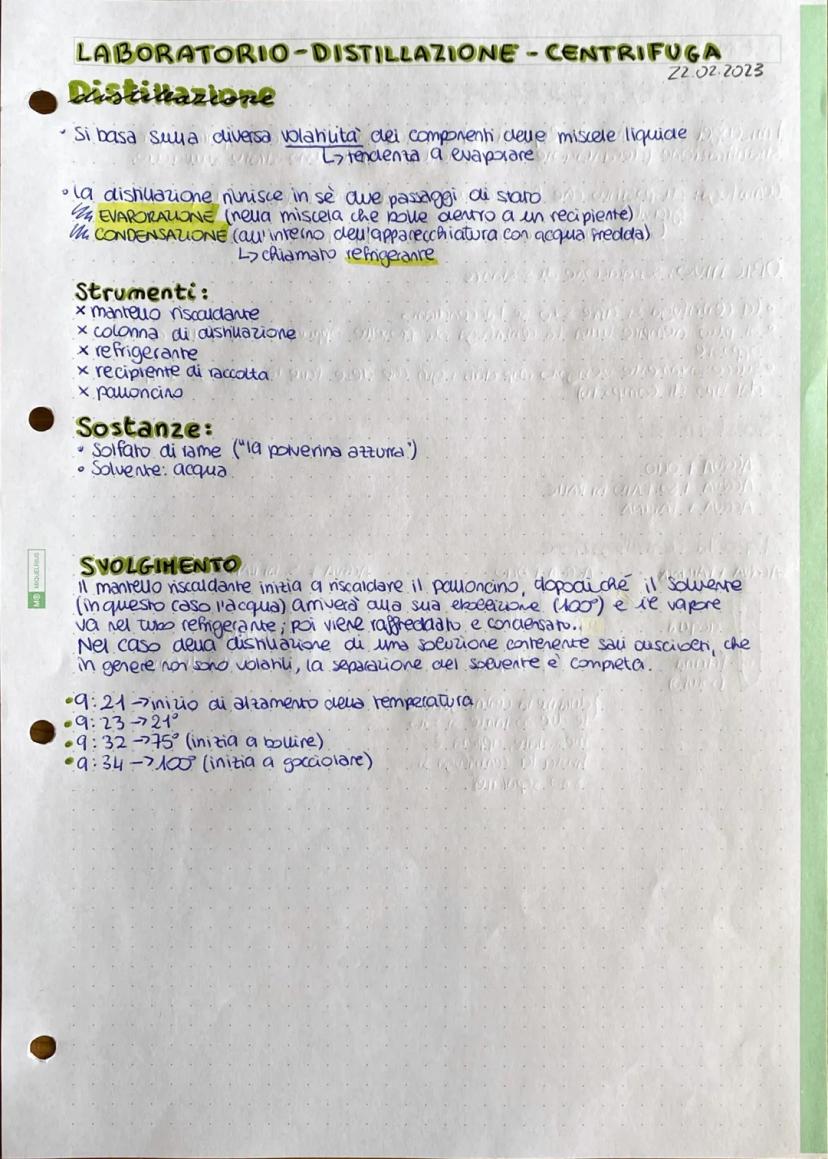 LABORATORIO-DISTILLAZIONE-CENTRIFUGA
22.02.2023
Distillazione
• Si basa sulla diversa volatilità dei componenti delle miscele liquide
↳ tendenza a evaporare
• la distillazione riunisce in sè due passaggi di stato
EVAPORAZIONE (nella miscela che bolle dentro a un recipiente)
CONDENSAZIONE (all'interno dell'apparecchiatura con acqua fredda)
↳ chiamato refrigerante
Strumenti:
× mantello riscaldante
× colonna di distillazione
× refrigerante
× recipiente di raccolta
× palloncino
Sostanze:
• Solfato di rame ("la polverina azzurra")
• Solvente: acqua
SVOLGIMENTO
Il mantello riscaldante inizia a riscaldare il palloncino, dopodiché il solvente
(in questo caso l'acqua) arriverà alla sua ebollizione (100°) e il vapore
va nel tubo refrigerante; poi viene raffreddato e condensato.
Nel caso della distillazione di una soluzione contenente sali disciolti, che
in genere non sono volatili, la separazione del solvente è completa.
• 9:21 → inizio di alzamento della temperatura
• 9:23 → 21°
• 9:32 → 75° (inizia a bollire)
• 9:34 → 100° (inizia a gocciolare)
MIQUELRIUS